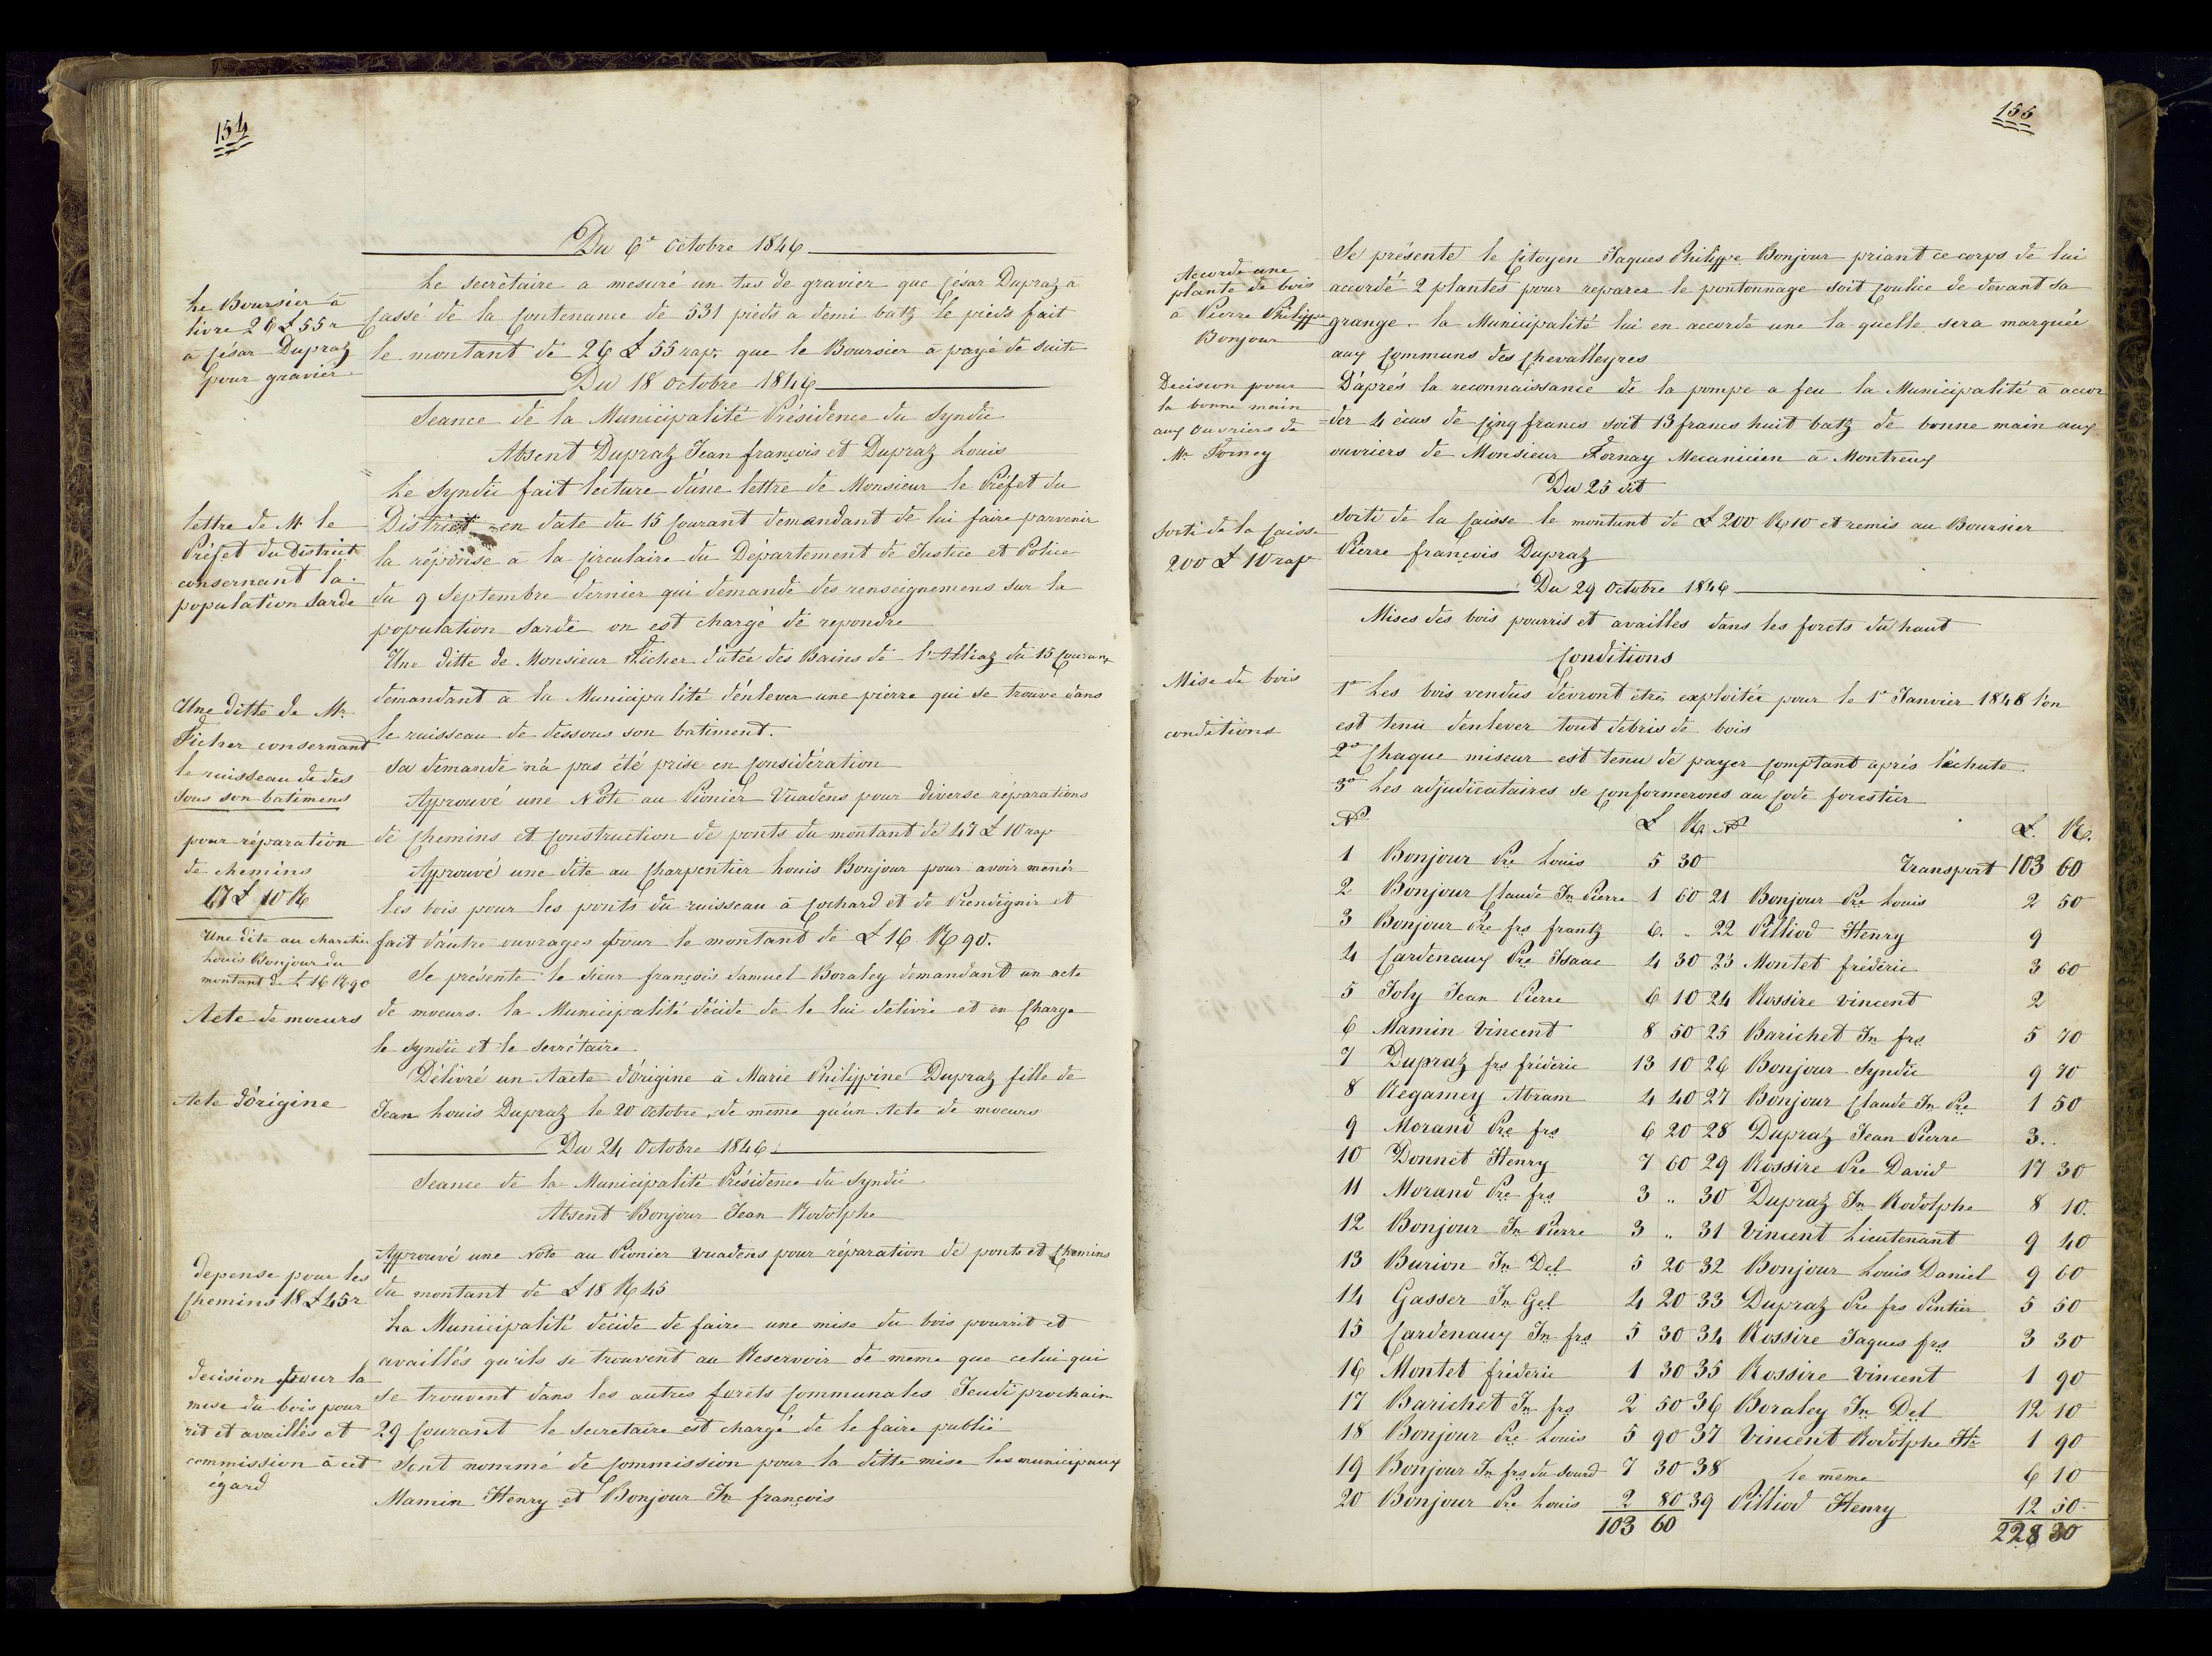 154
Du 6e Octobre 1846
Le Boursier à
livré 26 £ 55 r
à César Dupraz
pour gravier
Le secrétaire a mesuré un tas de gravier que César Dupraz a
Cassé de la Contenance de 531 pieds a demi batz le pieds fait
le montant de 26 £ 55 rap. que le Boursier à payé de suite
Du 18 octobre 1846
Seance de la Municipalité Présidence du Syndic
Absent Dupraz Jean françois et Dupraz Louis
lettre de Mr. le
Préfet du District
consernant la
population Sarde
Le Syndic fait lecture d'une lettre de Monsieur le Préfet du
District en date du 15 Courant demandant de lui faire parvenir
la réponse à la Circulaire du Département de Justice et Police
du 9 Septembre dernier qui demande des renseignemens sur la
population Sarde on est chargé de repondre
Une ditte de Mr.
Ficher consernant
le ruisseau de des
sous son batimens
Une ditte de Monsieur Ficher datée des Bains de l'Alliaz du 15 Courant
demandant à la Municipalité d'enlever une pierre qui se trouve dans
le ruisseau de dessous son batiment.
Sa demande n'a pas été prise en Considération
pour réparation
de chemins
47 £ 10 Rp
Approuvé une Note au Pionier Vuadens pour diverse réparations
de Chemins et Construction de ponts du montant de 47 £ 10 rap
Une dite au charetier
Louis Bonjour du
montant de £ 16 Rp 90
Approuvé une dite au Charpentier Louis Bonjour pour avoir menér
les bois pour les ponts du ruisseau à Cochard et de Prendignir et
fait d'autre ouvrages pour le montant de £ 16 Rp 90.
Acte de moeurs
Se présente le sieur françois Samuel Boraley demandant un acte
de moeurs. la Municipalité décide de le lui délivré et en Charge
le Syndic et le secrétaire
Acte d'origine
Délivré un Aacte d'Origine à Marie Philippine Dupraz fille de
Jean Louis Dupraz le 20 octobre, de meme qu'un Acte de moeurs
Du 24 Octobre 1846
Seance de la Municipalité Présidence du Syndic
Absent Bonjour Jean Rodolphe
depense pour les
Chemins 18 £ 45 r
Approuvé une Note au Pionier Vuadens pour réparation de ponts et Chemins
du montant de £ 18 Rp 45
decision pour la
mise du bois pour
rit et availlés et
commission à cet
égard
La Municipalité decide de faire une mise du bois pourrit et
availlés qu'ils se trouvent au Reservoir de meme que celui qui
se trouvent dans les autres forêts Communales Jeudi prochain
29 Courant le secretaire est chargé de le faire publié
Sont nommé de Commission pour la ditte mise les municipaux
Mamin Henry et Bonjour Jn françois
155
Accorde une
plante de bois
à Pierre Philippe
Bonjour
Se présente le Citoyen Jaques Philippe Bonjour priant ce corps de lui
accordé 2 plantes pour reparer le pontonnage soit Coulice de devant sa
grange. la Municipalité lui en accorde une la quelle sera marquée
aux Communs des Chevalleyres
Decision pour
la bonne main
aux Ouvriers de
Mr. Forney
D'après la reconnaissance de la pompe a feu la Municipalité à accor
=der 4 écus de Cinq francs soit 13 francs huit batz de bonne main aux
ouvriers de Monsieur Fornay Mecanicien à Montreux
Du 25 dit
Sorti de la Caisse
200 £ 10 rap
Sorti de la Caisse le montant de £ 200 Rp 10 et remis au Boursier
Pierre françois Dupraz
Du 29 Octobre 1846
Mises des bois pourris et availles dans les forets du haut
Mise de bois
conditions
Conditions
1e Les bois vendus devront êtres exploitée pour le 1er Janvier 1848 l'on
est tenu d'enlever tout debris de bois
2e Chaque miseur est tenu de payer Comptant après l'échute.
3e Les adjudicataires se Conformerons au Code forestier
No £ Rp No £. Rp.
1 Bonjour Pre Louis 5 30 Transport 103 60
2 Bonjour Claude Jn Pierre 1 60 21 Bonjour Pre Louis 2 50
3 Bonjour Pre frs frantz 6. " 22 Pilliod Henry 9
4 Cardenaux Pre Isaac 4 30 23 Montet fréderic 3 60
5 Joly Jean Pierre 6 10 24 Rossire Vincent 2
6 Mamin Vincent 8 50 25 Barichet Jn frs 5 70
7 Dupraz frs fréderic 13 10 26 Bonjour Syndic 9 70
8 Regamey Abram 4 40 27 Bonjour Claude Jn Pre 1 50
9 Morand Pre frs 6 20 28 Dupraz Jean Pierre 3..
10 Donnet Henry 7 60 29 Rossire Pre David 17 30
11 Morand Pre frs 3 " 30 Dupraz Jn Rodolphe 8 10.
12 Bonjour Jn Pierre 3 " 31 Vincent Lieutenant 9 40
13 Burion Jn Del 5 20 32 Bonjour Louis Daniel 9 60
14 Gasser Jn Gel 4 20 33 Dupraz Pre frs Pintier 5 50
15 Cardenaux Jn frs 5 30 34 Rossire Jaques frs 3 30
16 Montet fréderic 1 30 35 Rossire Vincent 1 90
17 Barichet Jn frs 2 50 36 Boraley Jn Del 12 10
18 Bonjour Pre Louis 5 90 37 Vincent Rodolphe 1 90
19 Bonjour Jn frs du Sourd 7 30 38 le même 6 10
20 Bonjour Pre Louis 2 80 39 Pilliod Henry 12 50
103 60 228 30